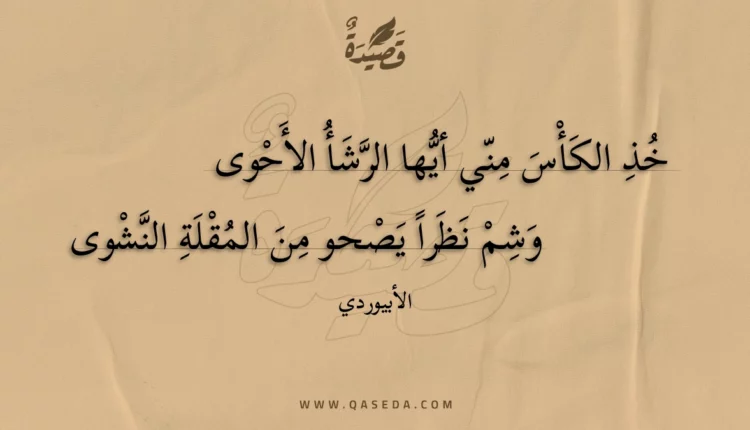 قَصِيْدَةٌ
خُذِ الكَأْسَ مِنّي أيُّها الرَّشَأُ الأَحْوى
وَشِمْ نَظَراً يَصْحو مِنَ المُقْلَةِ النَّشْوى
الأبيوردي
WWW.QASEDA.COM